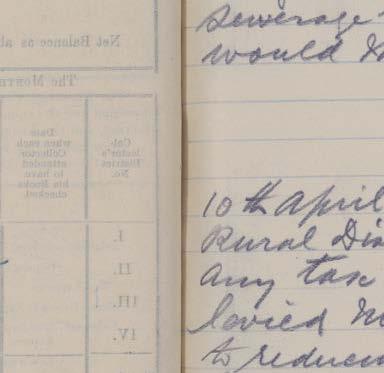 Net Balance as
The Month
Col-
lector's
District
No.
Date
when each
Collector
attended
to have
his Books
checked
I.
II.
III.
IV.
Sewerage
would
10th April
Rural
any tax
levied
to